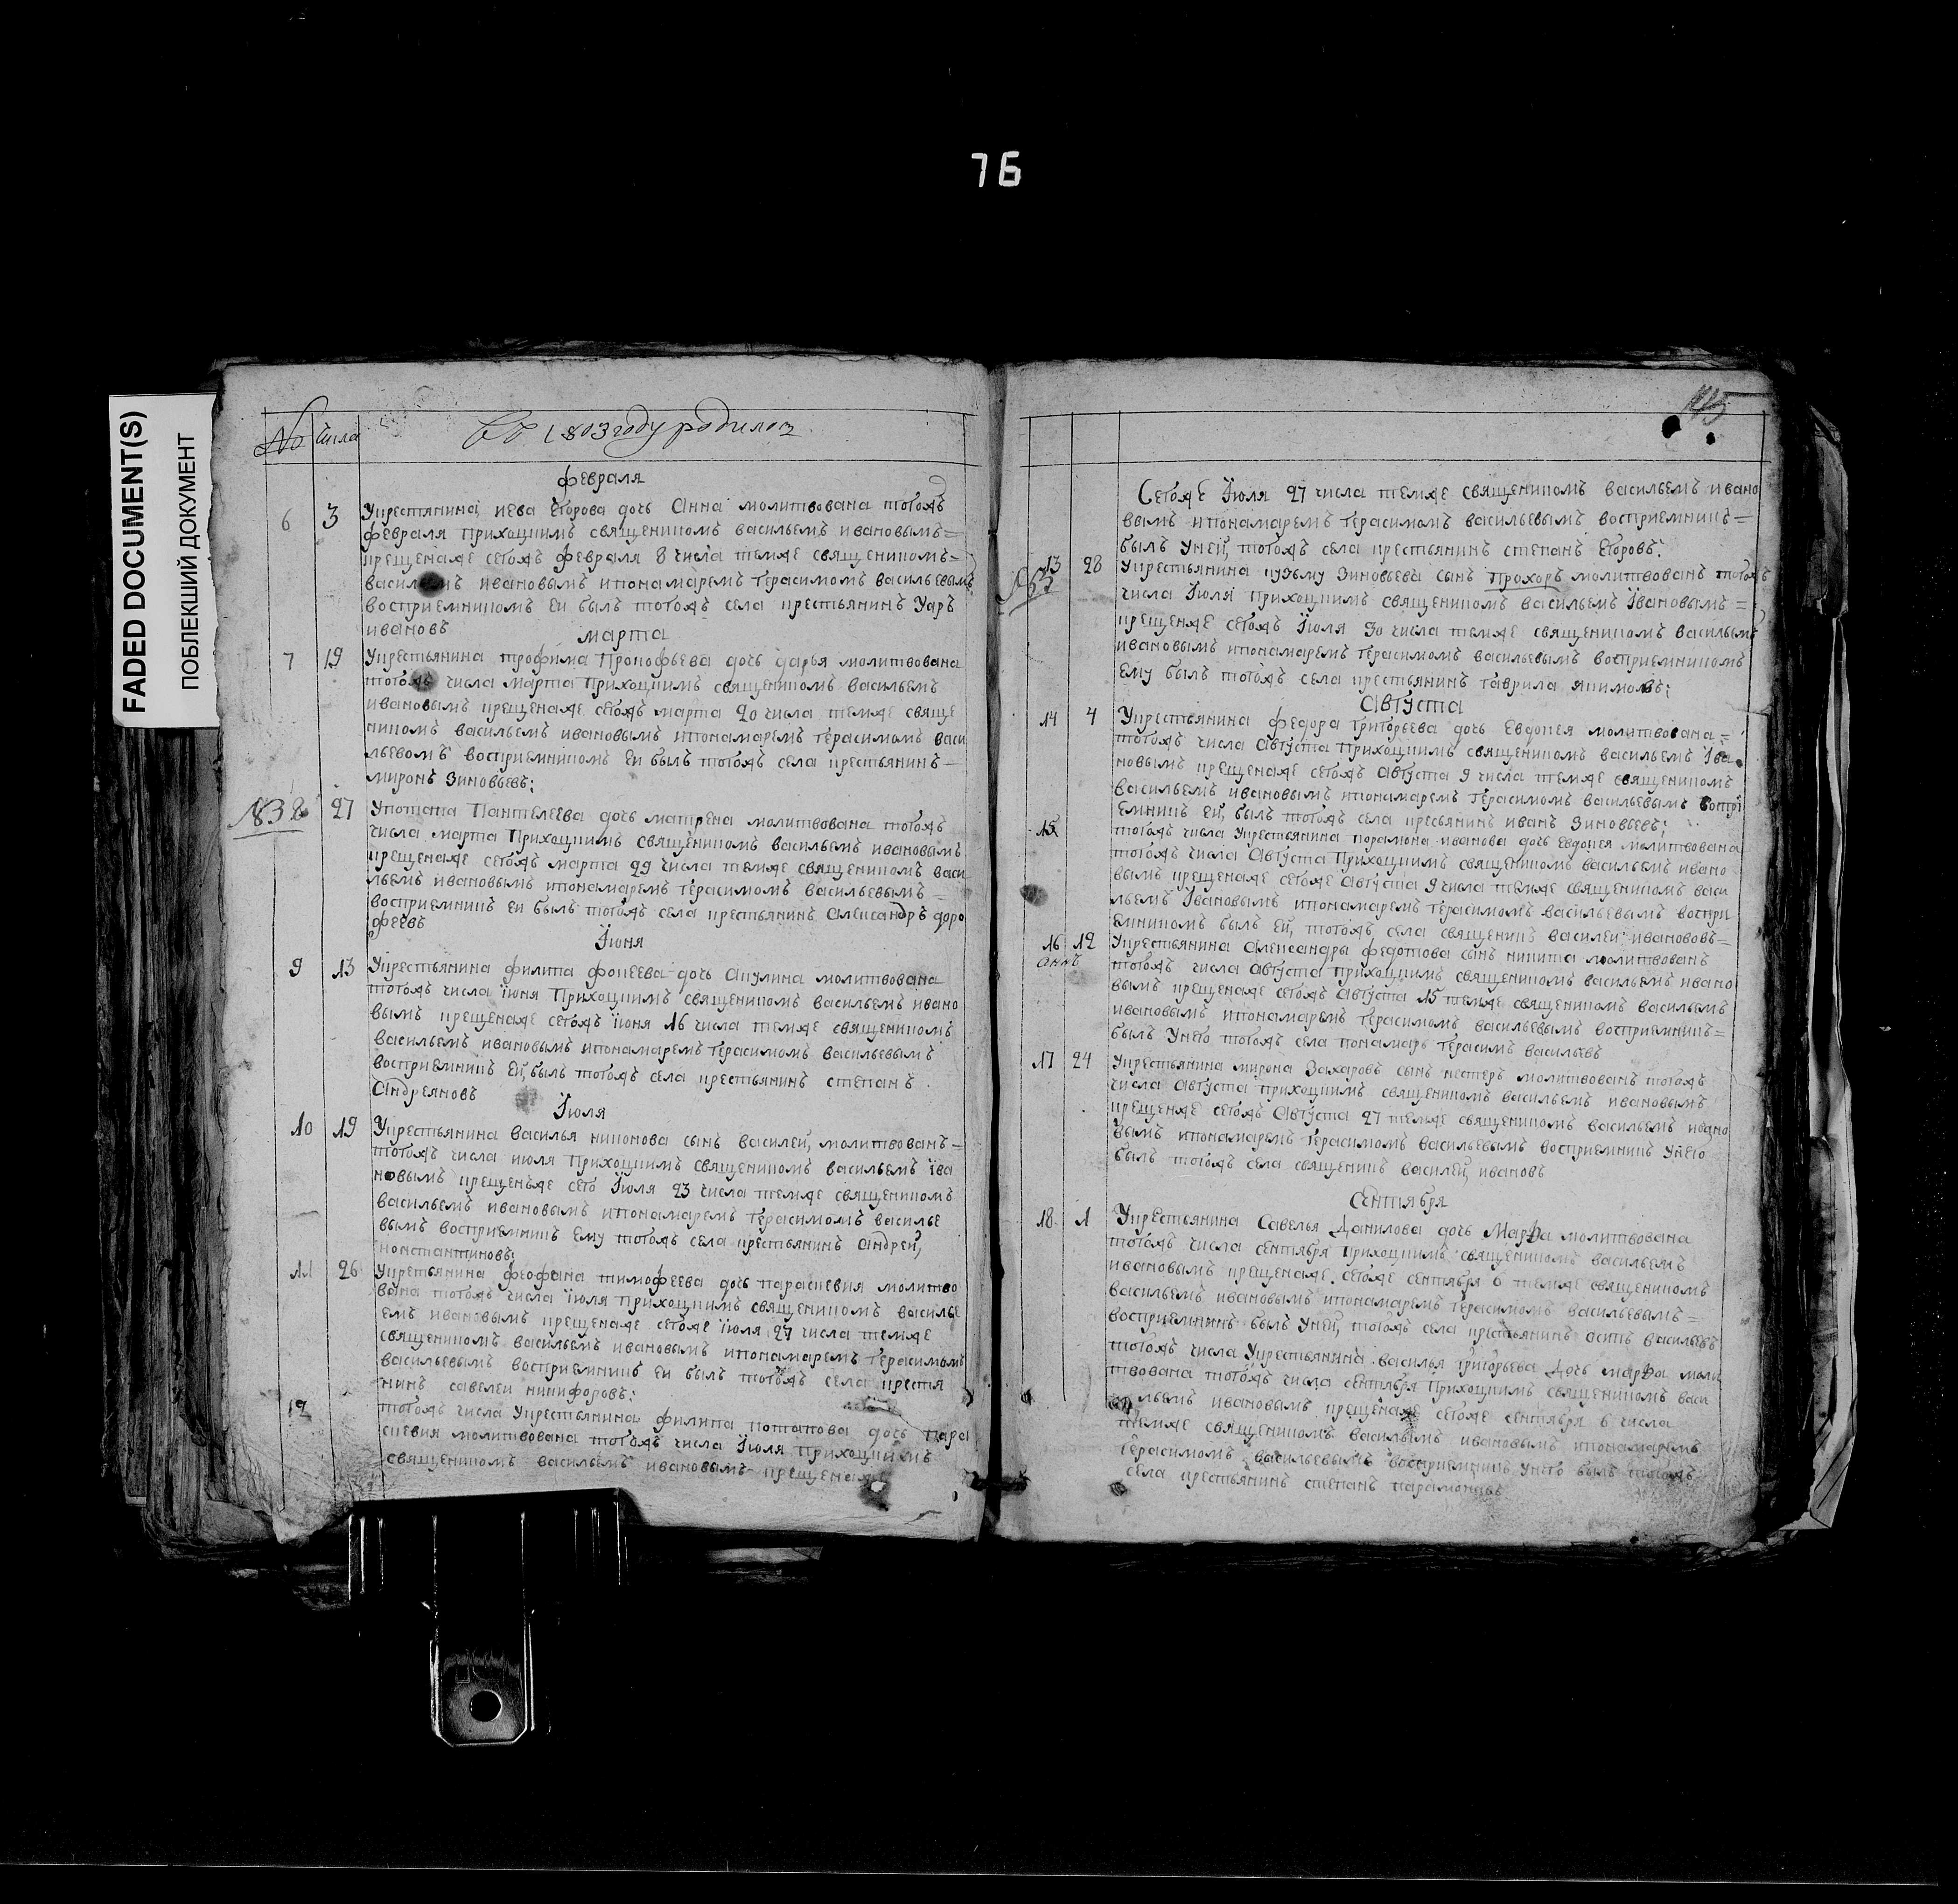 76
FADED DOCUMENT(S)
ПОБЛЕКШИЙ ДОКУМЕНТ
№ числа Въ 1803 году родилос
февраля
6 3 Укрестянина иева Егорова дочь Анна молитвована тогожъ
февраля Приходцкимъ священикомъ васильемъ ивановымъ=
крещенаже сегожъ февраля 8 числа темже священикомъ=
васильемъ ивановымъ ипонамаремъ герасимомъ васильевымъ
восприемникомъ еи былъ тогожъ села крестьянинъ Уаръ
ивановъ
марта
7 19 Укрестьянина трофима Прокофьева дочь дарья молитвована
тогожъ числа марта Приходцкимъ священикомъ васильемъ
ивановымъ крещенаже сегожъ марта 20 числа темже свяще
никомъ васильемъ ивановымъ ипонамаремъ герасимомъ васи
льевомъ восприемникомъ еи былъ тогожъ села крестьянинъ
миронъ Зиновьевъ:
№ 8 27 Употапа Пантелеева дочь матрена молитвована тогожъ
числа марта Приходцкимъ священикомъ васильемъ ивановымъ
крещенаже сегожъ марта 29 числа темже священикомъ васи
льемъ ивановымъ ипонамаремъ герасимомъ васильевымъ=
восприемникъ еи былъ тогожъ села крестьянинъ Александръ доро
феевъ
Їюня
9 13 Укрестьянина филипа фокеева дочь Акулина молитвована
тогожъ числа їюня Приходцкимъ священикомъ васильемъ ивано
вымъ крещенаже сегожъ їюня 16 числа темже священикомъ
васильемъ ивановымъ ипонамаремъ герасимомъ васильевымъ
восприемникъ Ей, былъ тогожъ села крестьянинъ степанъ
Андреяновъ
Їюля
10 19 Укрестьянина василья никонова сынъ василей, молитвованъ=
тогожъ числа июля Приходцкимъ священикомъ васильемъ їва
новымъ крещенъже сего Їюля 23 числа темже священикомъ
васильемъ ивановымъ ипонамаремъ герасимомъ василье
вымъ восприемникъ Ему тогожъ села крестьянинъ Андрей,
константиновъ:
11 26 Укрестьянина феофана тимофеева дочь параскевия молитво
вана тогожъ числа їюля приходцкимъ священикомъ василье
емъ ивановымъ крещенаже сегоже їюля 27 числа темже
священикомъ васильемъ ивановымъ ипонамаремъ герасимомъ
васильевымъ восприемникъ еи былъ тогожъ села крестя
нинъ савелеи никифоровъ:
12 тогожъ числа Укрестьянина филипа потапова дочь пара
скевия молитвована тогожъ числа Їюля Приходцкимъ
священикомъ васильемъ ивановымъ крещенаже
Сегоже Їюля 27 числа темже священикомъ васильемъ ивано
вымъ ипонамаремъ герасимомъ васильевымъ восприемникъ=
былъ Уней, тогожъ села крестьянинъ степанъ Егоровъ:
13 28 Укрестьянина кузьму Зиновьева сынъ Прохоръ молитвованъ тогожъ
числа Їюля приходцкимъ священикомъ васильемъ Ївановымъ=
крещенже сегожъ Їюля 30 числа темже священикомъ васильемъ
ивановымъ ипонамаремъ герасимомъ васильевымъ восприемникомъ
ему былъ тогожъ села крестьянинъ гаврила якимовъ:
Августа
14 4 Укрестьянина федора григорьева дочь Евдокея молитвована=
тогожъ числа Августа приходцкимъ священикомъ васильемъ Їва
новымъ крещенаже сегожъ августа 9 числа темже священикомъ
васильемъ ивановымъ ипонамаремъ герасимомъ васильевымъ воспрї
емникъ Ей, былъ тогожъ села кресьянинъ иванъ Зиновьевъ:
15 тогожъ числа Укрестьянина порамона иванова дочь Евдокея молитвована
тогожъ числа Августа Приходцкимъ священикомъ васильемъ ивано
вымъ крещенаже сегоже Августа 9 числа темже священикомъ васи
льемъ Ївановымъ ипонамаремъ герасимомъ васильевымъ воспри
емникомъ былъ Ей, тогожъ села священикъ василеи ивановъ=
16 12 Укрестьянина Александры федотова сынъ никита молитвованъ
тогожъ числа Августа приходцкимъ священикомъ васильемъ ивано
вымъ крещенаже сегожъ Августа 15 темже священикомъ васильемъ
ивановымъ ипонамаремъ герасимомъ васильевымъ восприемникъ=
былъ Унего тогожъ села понамарь герасимъ васильевъ
17 24 Укрестьянина мирона Захаровъ сынъ нестеръ молитвованъ тогожъ
числа Августа приходцкимъ священикомъ васильемъ ивановымъ
крещенже сегожъ Августа 27 темже священикомъ васильемъ ивано
вымъ ипонамаремъ герасимомъ васильевымъ восприемникъ Унего
былъ тогожъ села священикъ василей, ивановъ
Сентября
18 1 Укрестьянина Савелья Данилова дочь Марфа молитвована
тогожъ числа сентября приходцкимъ священикомъ васильемъ
ивановымъ крещенаже сегоже сентября 6 темже священикомъ
васильемъ ивановымъ ипонамаремъ герасимомъ васильевымъ=
восприемникъ былъ Уней, тогожъ села крестьянинъ осипъ васильевъ
тогожъ числа Укрестьянина василья григорьева Дочь марфа моли
твована тогожъ числа сентября приходцкимъ священикомъ васи
льемъ ивановымъ крещенаже сегоже сентября 6 числа
темже священикомъ васильемъ ивановымъ ипонамаремъ
герасимомъ васильевымъ восприемникъ Унего былъ тогожъ
села крестьянинъ степанъ парамоновъ